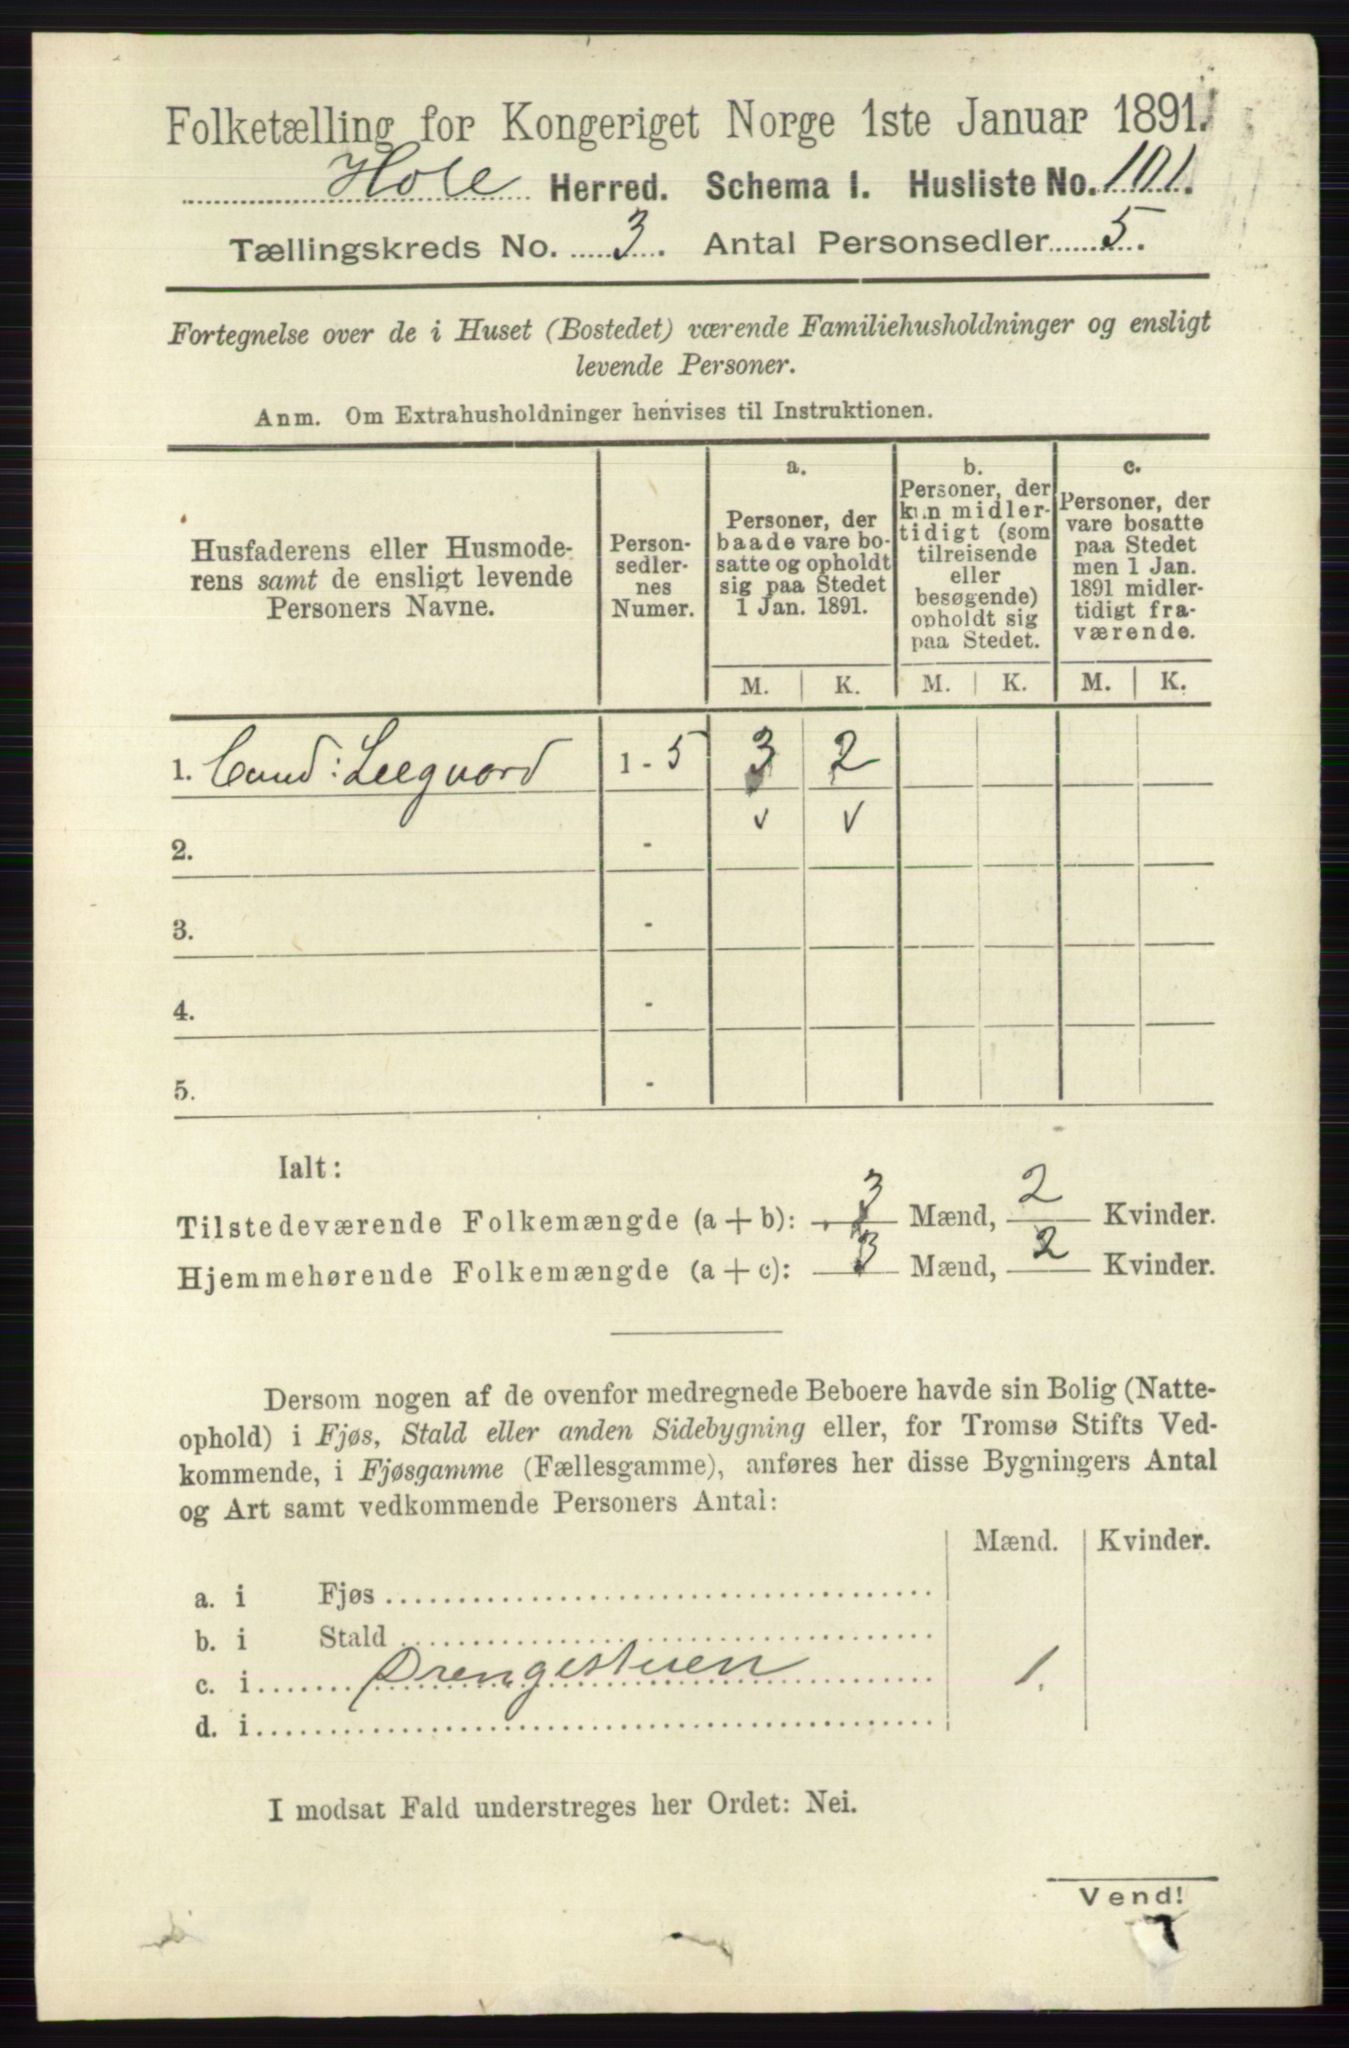 Folketælling for Kongeriget Norge 1ste Januar 1891.
Hole Herred. Schema I. Husliste No. 101.
Tællingskreds No. 3. Antal Personsedler 5.
Fortegnelse over de i Huset (Bostedet) værende Familiehusholdninger og ensligt
levende Personer.
Anm. Om Extrahusholdninger henvises til Instruktionen.
Husfaderens eller Husmode-
rens samt de ensligt levende
Personers Navne.
Person-
sedler-
nes
Numer.
a.
Personer, der
baade vare bo-
satte og opholdt
sig paa Stedet
1 Jan. 1891.
b.
Personer, der
kun midler-
tidigt (som
tilreisende
eller
besøgende)
opholdt sig
paa Stedet.
c.
Personer, der
vare bosatte
paa Stedet
men 1 Jan.
1891 midler-
tidigt fra-
værende.
M. K. M. K. M. K.
1. Cand: Leegaard 1 - 5 3 2
v v
2. -
3. -
4. -
5. -
Ialt:
Tilstedeværende Folkemængde (a + b): 3 Mænd, 2 Kvinder.
Hjemmehørende Folkemængde (a + c): 3 Mænd, 2 Kvinder.
Dersom nogen af de ovenfor medregnede Beboere havde sin Bolig (Natte-
ophold) i Fjøs, Stald eller anden Sidebygning eller, for Tromsø Stifts Ved-
kommende, i Fjøsgamme (Fællesgamme), anføres her disse Bygningers Antal
og Art samt vedkommende Personers Antal:
Mænd. Kvinder.
a. i Fjøs
b. i Stald
c. i Drengestuen 1.
d. i
I modsat Fald understreges her Ordet: Nei.
Vend!